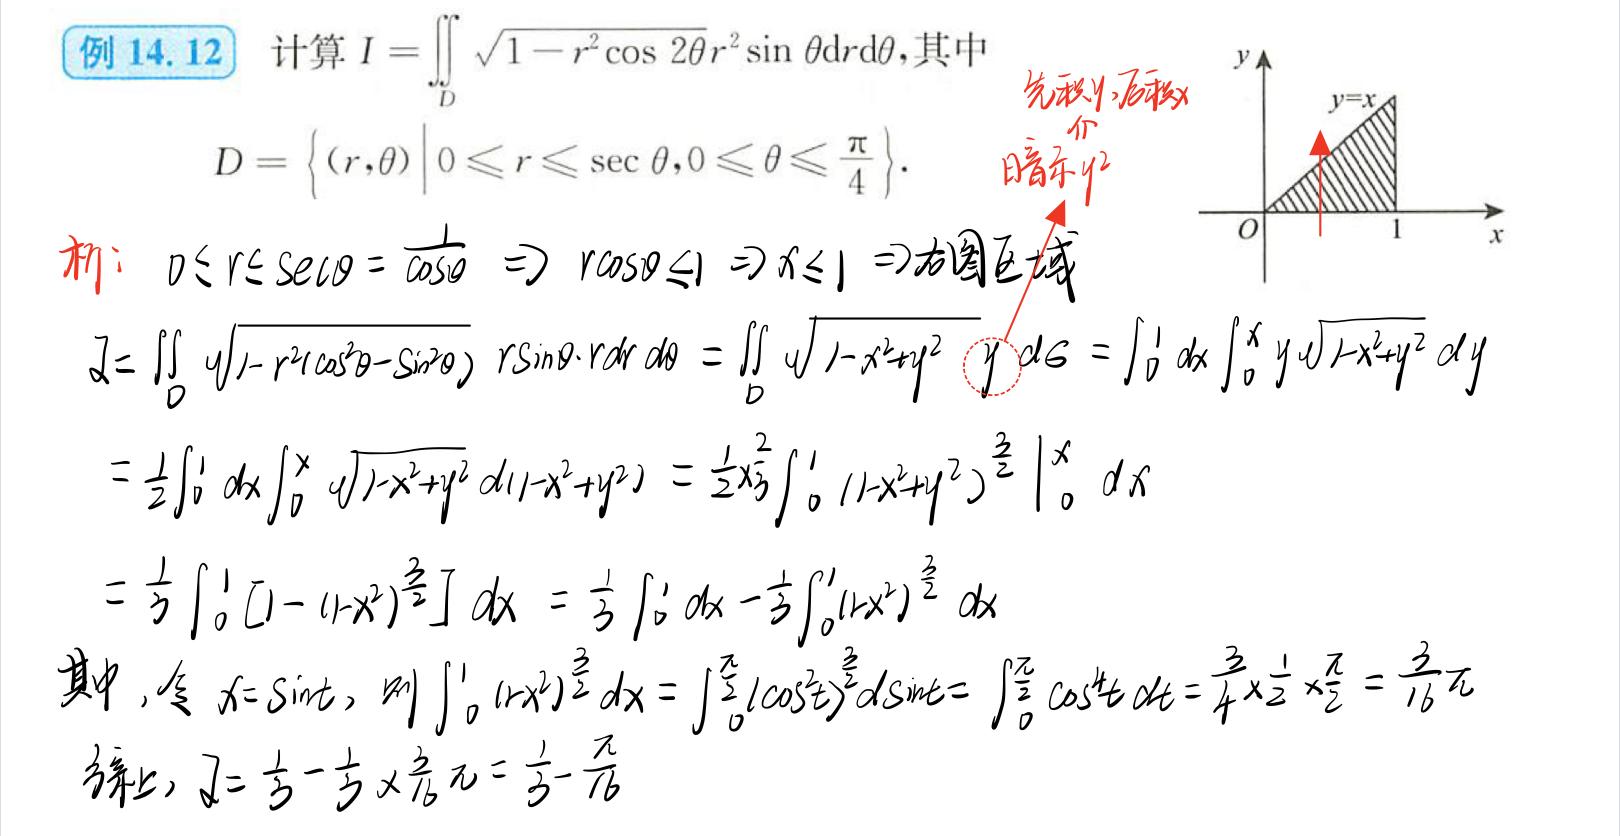 例 14.12 计算 I = ∬_D √(1 − r² cos 2θ) r² sin θ dr dθ, 其中
D = {(r,θ) | 0 ⩽ r ⩽ sec θ, 0 ⩽ θ ⩽ π/4}.
先积y,后积x
⇑
暗示 y²
y
y=x
O
1
x
析: 0 ≤ r ≤ secθ = 1/cosθ ⇒ rcosθ ≤ 1 ⇒ x ≤ 1 ⇒ 右图区域
I = ∬_D √(1−r²(cos²θ−sin²θ)) rsinθ·rdr dθ = ∬_D √(1−x²+y²) y dσ = ∫₀¹ dx ∫₀ˣ y√(1−x²+y²) dy
= 1/2 ∫₀¹ dx ∫₀ˣ √(1−x²+y²) d(1−x²+y²) = 1/2 × 2/3 ∫₀¹ (1−x²+y²)^(3/2) |₀ˣ dx
= 1/3 ∫₀¹ [1 − (1−x²)^(3/2)] dx = 1/3 ∫₀¹ dx − 1/3 ∫₀¹ (1−x²)^(3/2) dx
其中, 令 x = sint, 则 ∫₀¹ (1−x²)^(3/2) dx = ∫₀^(π/2) (cos²t)^(3/2) dsint = ∫₀^(π/2) cos⁴t dt = 3/4 × 1/2 × π/2 = 3/16 π
综上, I = 1/3 − 1/3 × 3/16 π = 1/3 − π/16